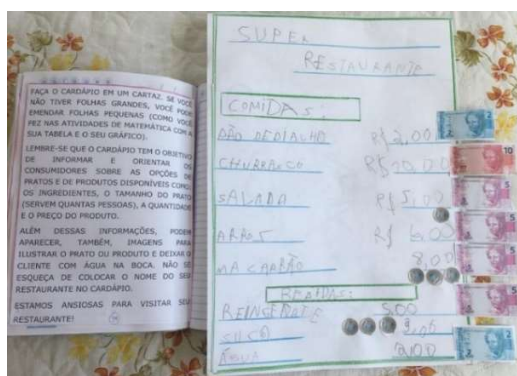 FAÇA O CARDÁPIO EM UM CARTAZ. SE VOCÊ
NÃO TIVER FOLHAS GRANDES, VOCÊ PODE
EMENDAR FOLHAS PEQUENAS (COMO VOCÊ
FEZ NAS ATIVIDADES DE MATEMÁTICA COM A
SUA TABELA E O SEU GRÁFICO).
LEMBRE-SE QUE O CARDÁPIO TEM O OBJETIVO
DE INFORMAR E ORIENTAR OS
CONSUMIDORES SOBRE AS OPÇÕES DE
PRATOS E DE PRODUTOS DISPONÍVEIS COMO:
OS INGREDIENTES, O TAMANHO DO PRATO
(SERVEM QUANTAS PESSOAS), A QUANTIDADE
E O PREÇO DO PRODUTO.
ALÉM DESSAS INFORMAÇÕES, PODEM
APARECER, TAMBÉM, IMAGENS PARA
ILUSTRAR O PRATO OU PRODUTO E DEIXAR O
CLIENTE COM ÁGUA NA BOCA. NÃO SE
ESQUEÇA DE COLOCAR O NOME DO SEU
RESTAURANTE NO CARDÁPIO.
ESTAMOS ANSIOSAS PARA VISITAR SEU
RESTAURANTE!
SUPER
RESTAURANTE
COMIDAS:
R$ 2,00
CHURRASCO R$ 20,00
SALADA R$ 5,00
ARROS R$ 6,00
MACARRÃO 8,00
BEBIDAS:
5,00
SUCO
ÁGUA 2,00
2
10
5
5
5
5
2